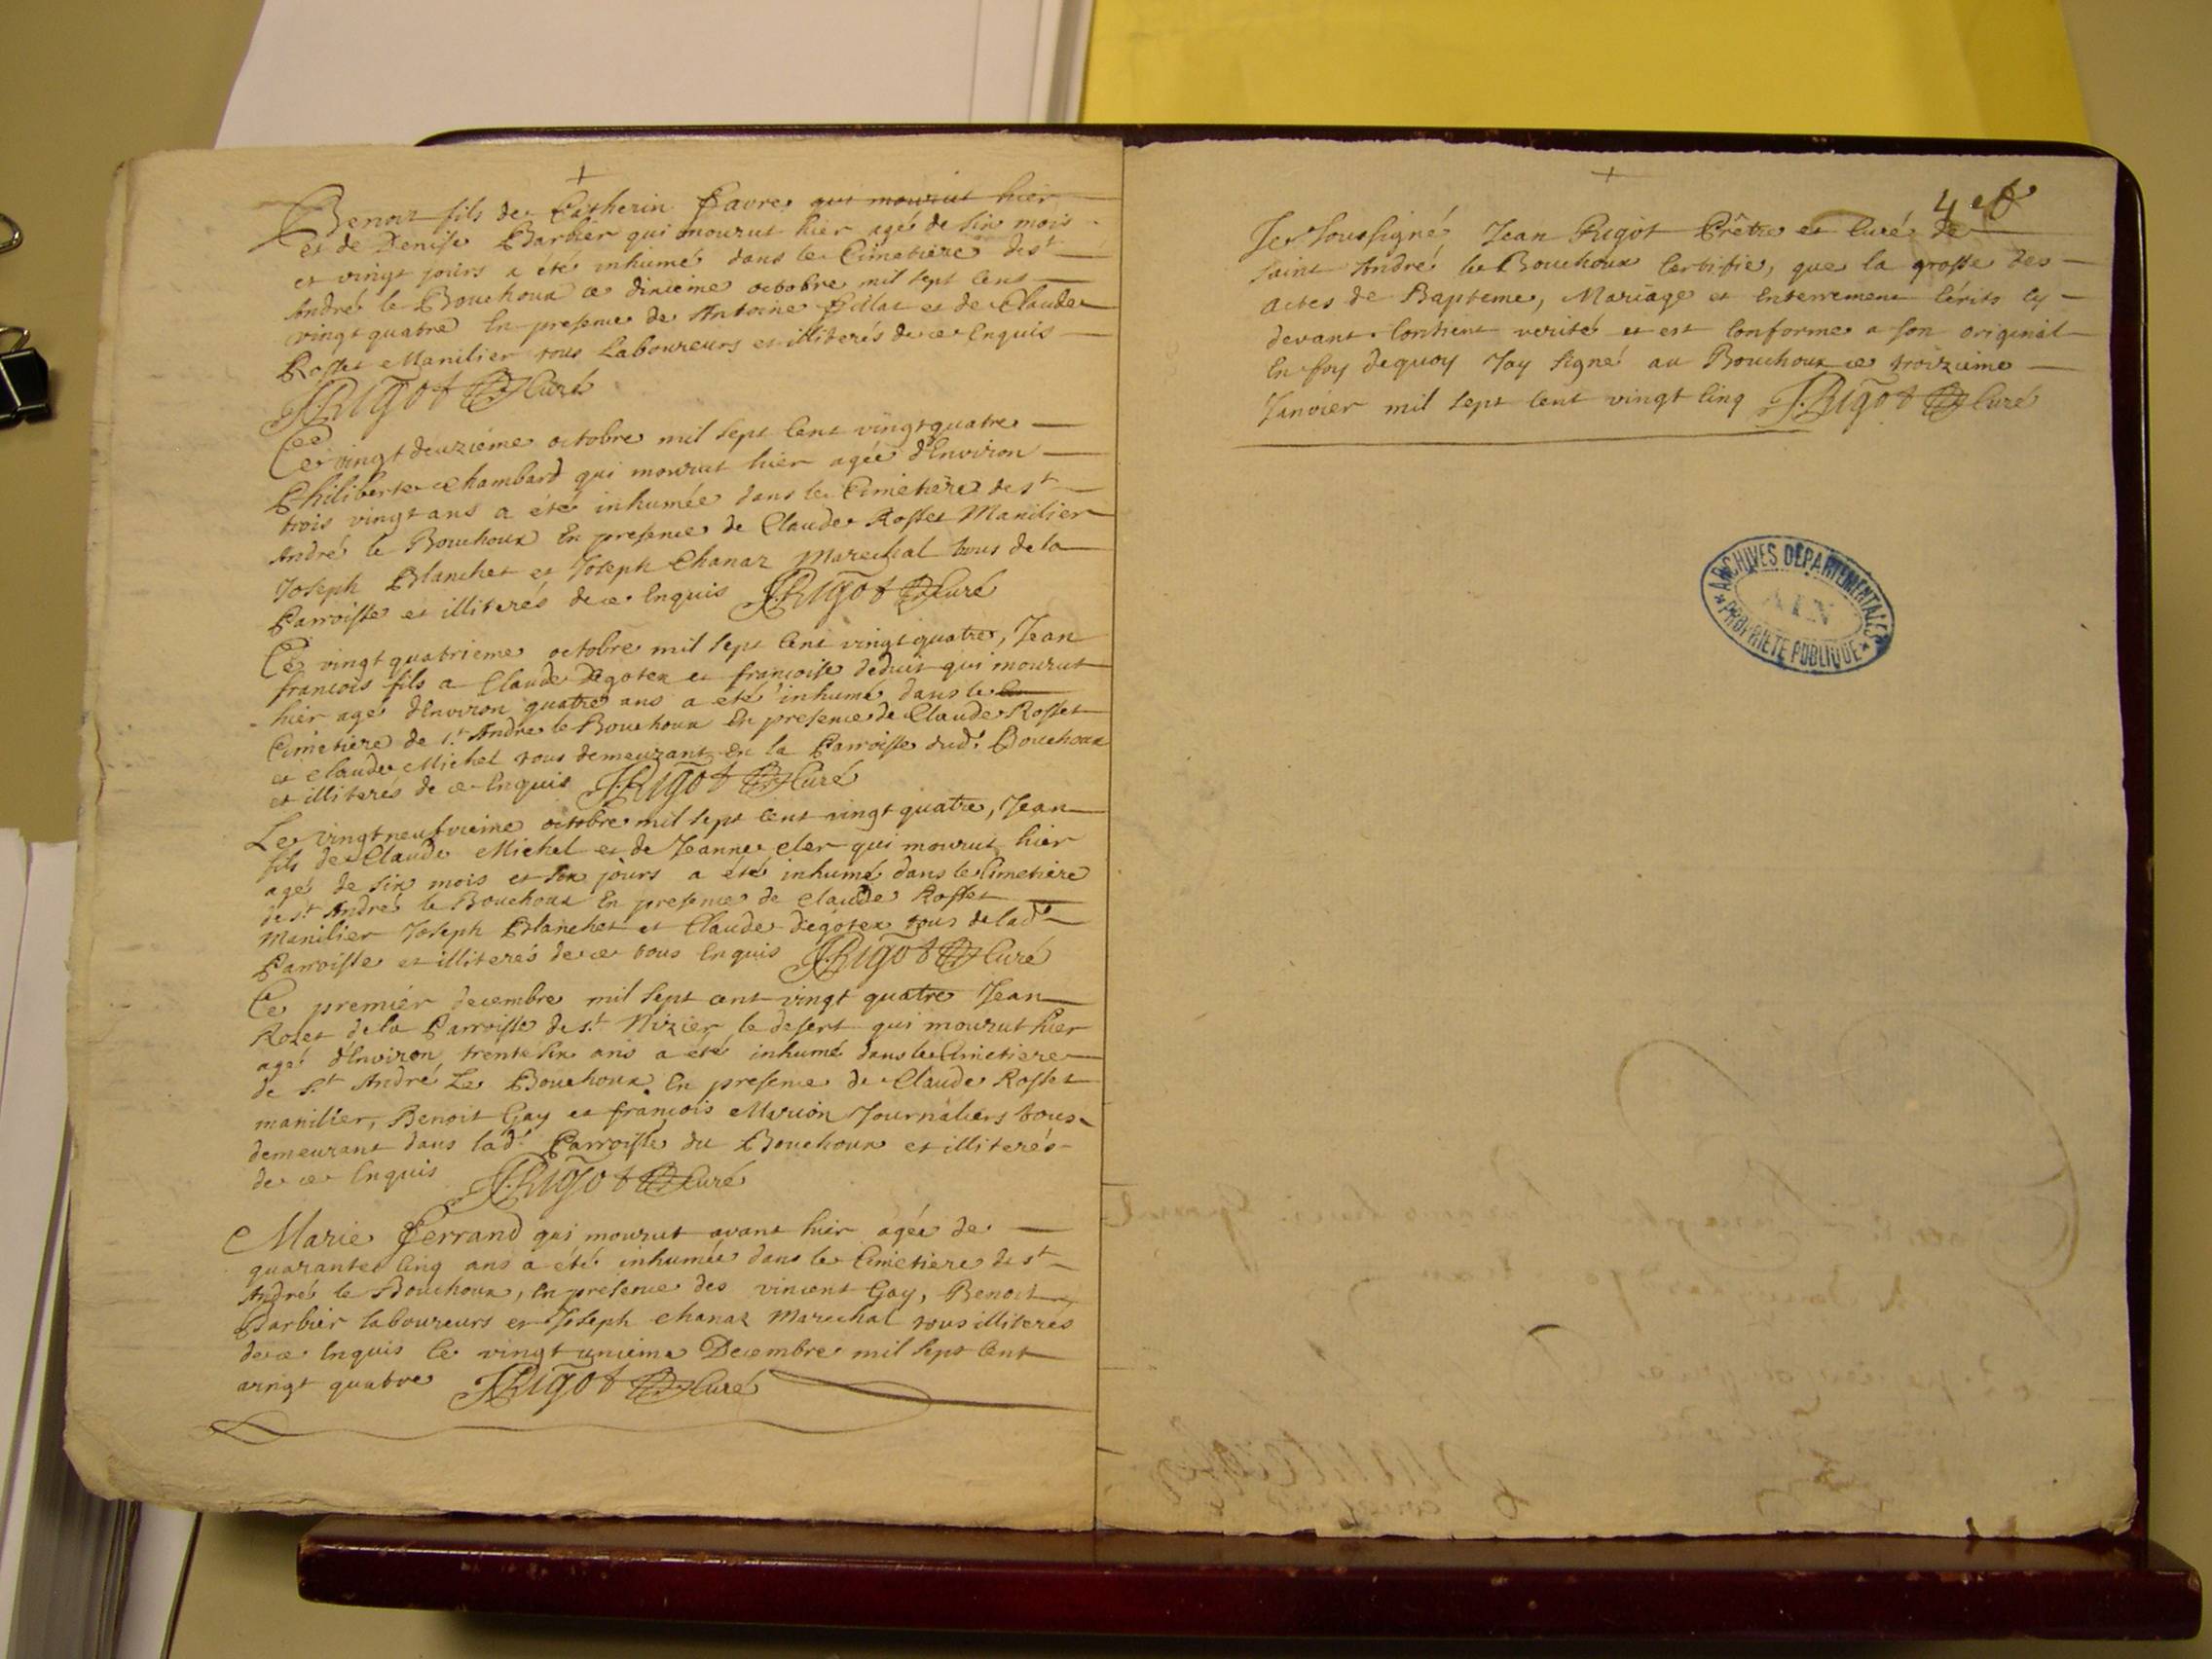 Benoit fils de Catherin Favre qui mourut hier
et de Denise Barbier qui mourut hier agé de six mois
et vingt jours a été inhumé dans le Cimetiere de st
André le Bouchoux ce dixieme octobre mil sept cens
vingt quatre En presence de Antoine Pillat et de Claude
Rosset Manilier tous Laboureurs et illiterés de ce Enquis
J. Rigot Curé
Ce vingt deuziéme octobre mil sept cent vingt quatre
Philiberte Chambard qui mourut hier agée d'Environ
trois vingt ans a été inhumée dans le Cimetiere de st
André le Bouchoux En presence de Claude Rosset Manilier
Joseph Blanchet et Joseph Chanaz Marechal tous de la
Parroisse et illiterés de ce Enquis J. Rigot Curé
Ce vingt quatrieme octobre mil sept cent vingt quatre, Jean
francois fils a Claude Degotex et francoise deduit qui mourut
hier agé d'Environ quatre ans a été inhumé dans le
Cimetiere de st. André le Bouchoux En presence de Claude Rosset
et Claude Michel tous demeurant En la Parroisse dud. Bouchoux
et illiterés de ce Enquis J. Rigot Curé
Le vingt neufvieme octobre mil sept cent vingt quatre, Jean
fils de Claude Michel et de Jeanne cler qui mourut hier
agé de six mois et six jours a été inhumé dans le Cimetiere
de st. André le Bouchoux En presence de Claude Rosset
Manilier Joseph Blanchet et Claude degotex tous de lad.
Parroisse et illiterés de ce tous Enquis J. Rigot Curé
Ce premiér decembre mil sept cent vingt quatre Jean
Rolet de la Parroisse de st. Nizier le desert qui mourut hier
agé d'Environ trente six ans a été inhumé dans le Cimetiere
de St. André Le Bouchoux. En presence de Claude Rosset
manilier, Benoit Gay et francois Marion Journaliers tous
demeurant dans lad. Parroisse du Bouchoux et illiterés
de ce Enquis J. Rigot Curé
Marie ferrand qui mourut avant hier agée de
quarante cinq ans a été inhumée dans le Cimetiere de st
André le Bouchoux, En presence des vincent Gay, Benoit
Barbier laboureurs et Joseph Chanaz Marechal tous illiterés
de ce Enquis Ce vingt unieme Decembre mil sept cent
vingt quatre J. Rigot Curé
4 et
Je soussigné Jean Rigot Prêtre et Curé de
saint André le Bouchoux Certifie, que la grosse des
actes de Bapteme, Mariage et Enterrement Cérits cy
devant. Contient verité et est Conforme a son original
En foy dequoy J'ay signé au Bouchoux ce troizieme
Janvier mil sept cent vingt Cinq J. Rigot Curé
ARCHIVES DÉPARTEMENTALES
AIN
PROPRIETE PUBLIQUE